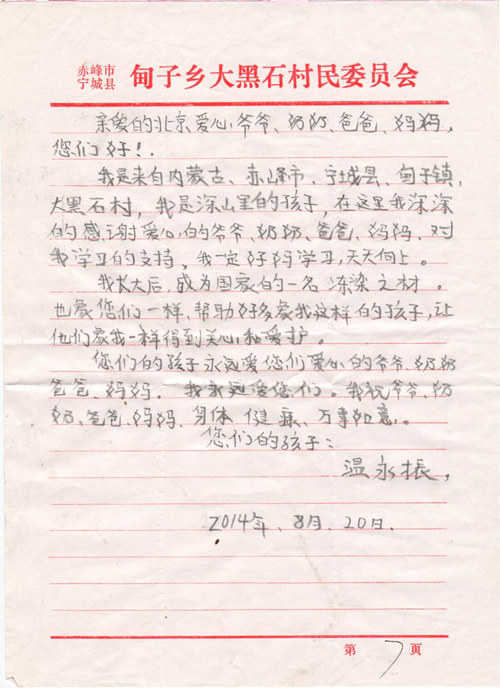 赤峰市
宁城县
甸子乡大黑石村民委员会
亲爱的北京爱心爷爷、奶奶、爸爸、妈妈,
您们好!.
我是来自内蒙古、赤峰市、宁城县、甸子镇
大黑石村,我是深山里的孩子,在这里我深深
的感谢爱心的爷爷、奶奶、爸爸、妈妈、对
我学习的支持,我一定好好学习,天天向上。
我长大后,成为国家的一名 栋梁之材.
也像您们一样、帮助好多像我这样的孩子,让
他们像我一样得到关心和爱护。
您们的孩子永远爱您们爱心的爷爷、奶奶
爸爸、妈妈. 我永远爱您们。我祝爷爷、奶
奶、爸爸、妈妈、身体 健康、万事如意。
您们的孩子:
温永振,
2014年、8月、20日.
第 7 页